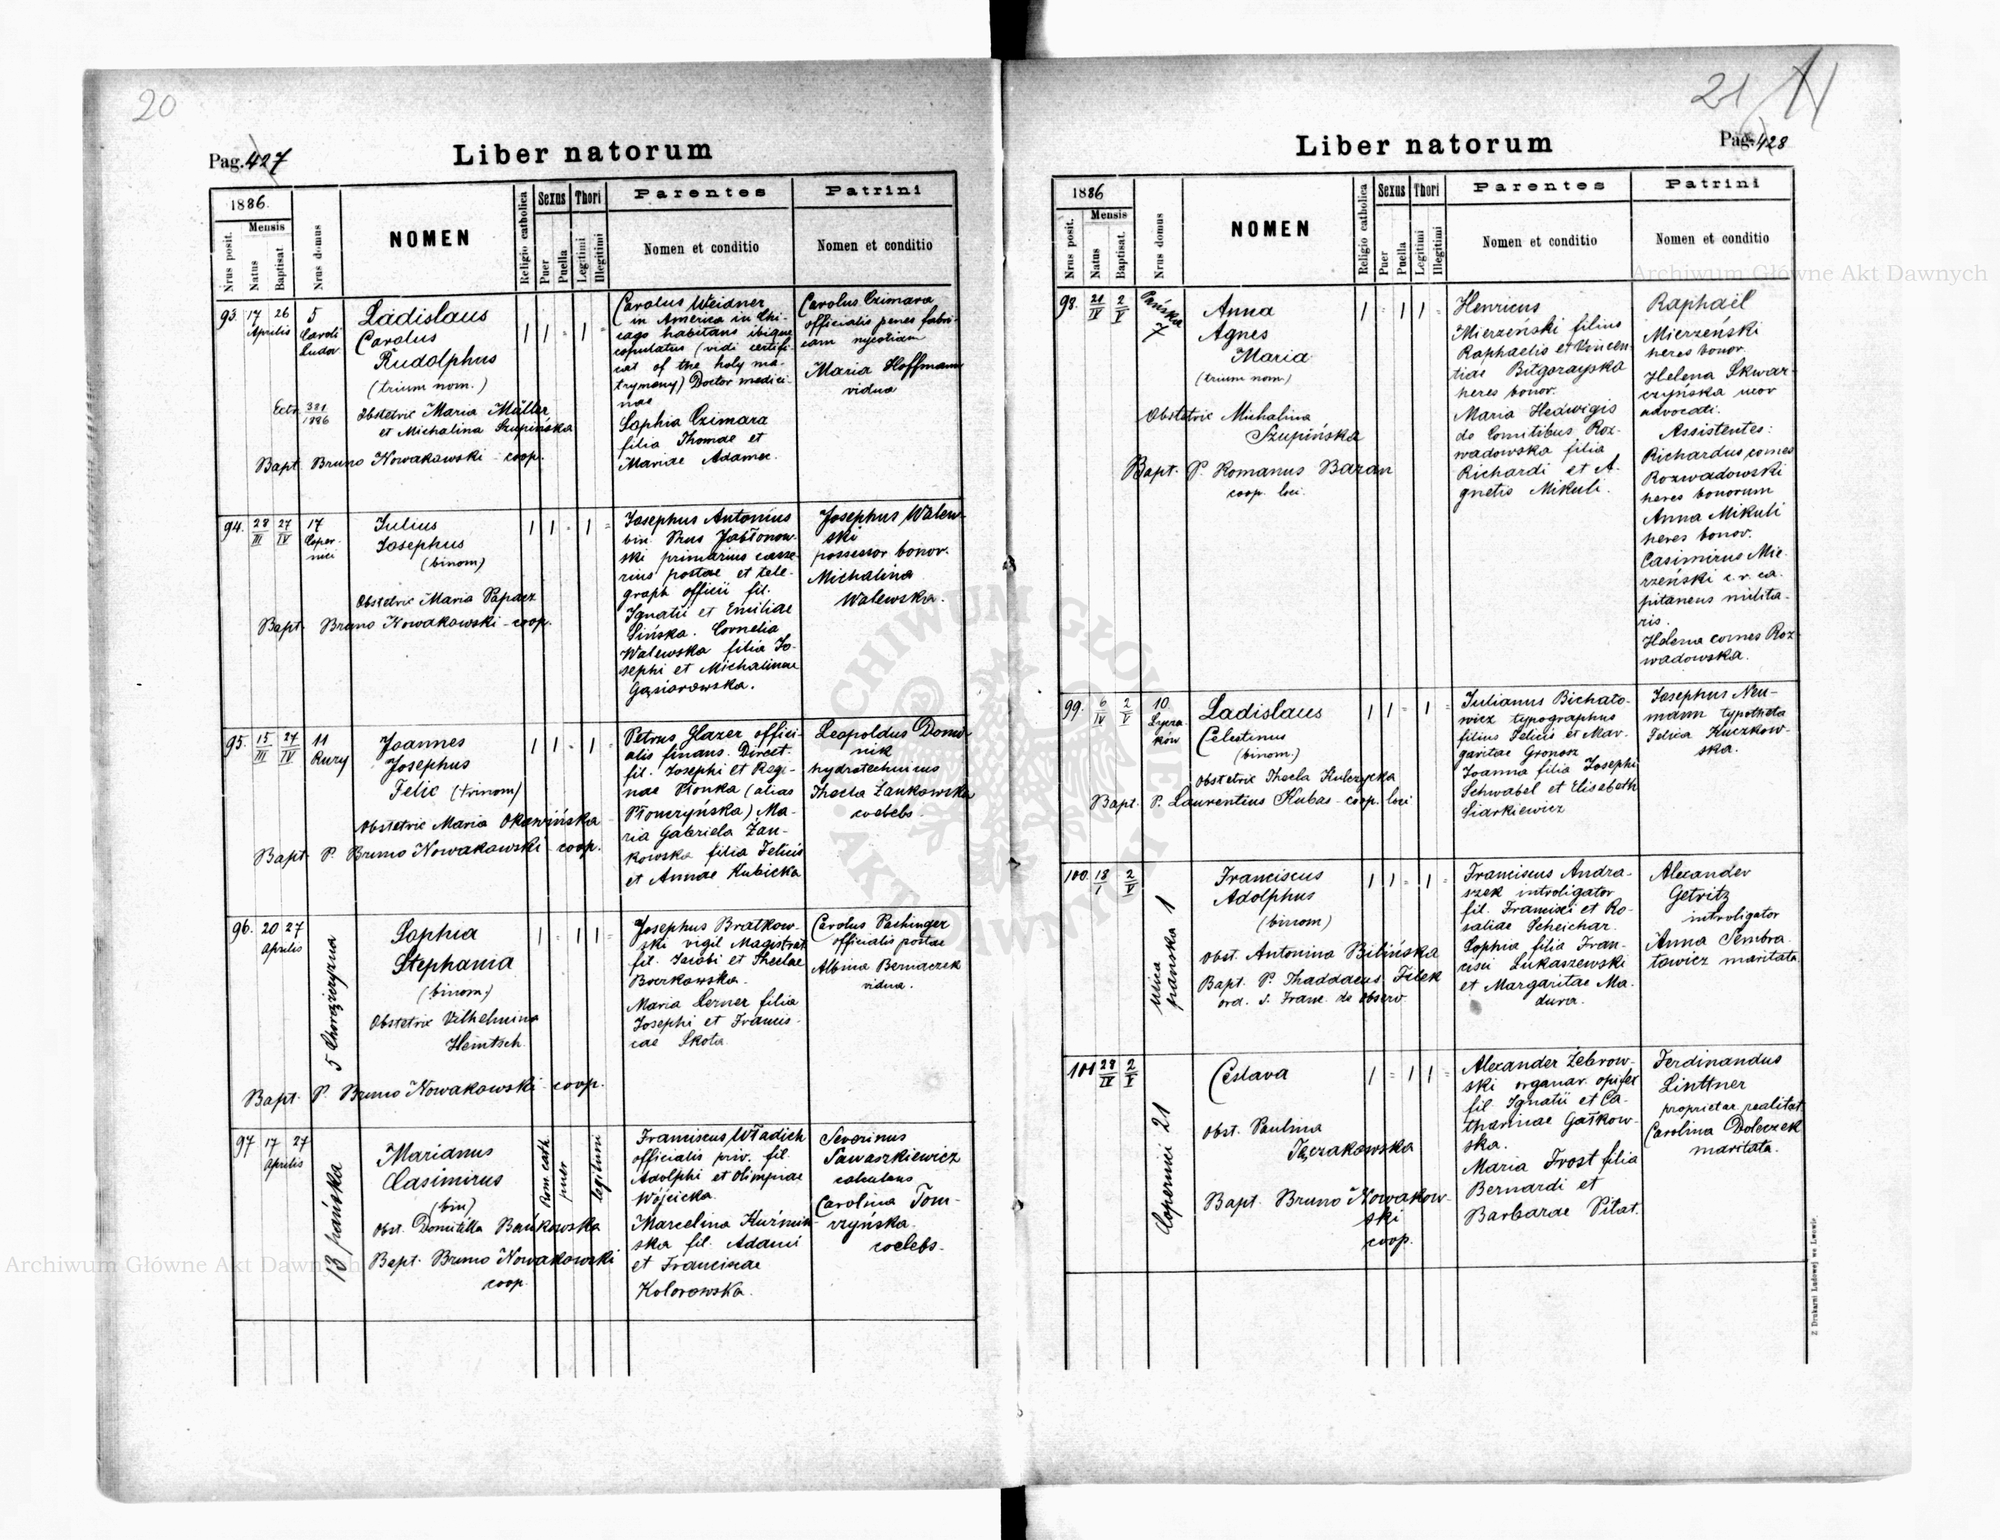 20
Pag. 427
Liber natorum
1886.
Nrus posit.
Mensis
Natus
Baptisat.
Nrus domus
NOMEN
Religio catholica
Sexus
Puer
Puella
Thori
Legitimi
Illegitimi
Parentes
Nomen et conditio
Patrini
Nomen et conditio
93. 17 26 Aprilis
5
Caroli
Ludov.
Ladislaus
Carolus
Rudolphus
(trium nom.)
Extr. 381/1886
Obstetrix Maria Müller
et Michalina Szupińska
Bapt. Bruno Nowakowski - coop.
1 1 - 1
Carolus Weidner
in America in Chi-
cago habitans ibique
copulatus (vidi certifi-
cat of the holy ma-
trymony) Doctor medici-
nae
Sophia Czimara
filia Thomae et
Mariae Adamec.
Carolus Czimara
officialis penes fabri-
cam nycotiam
Maria Hoffmann
vidua
94. 28/III 27/IV
17
Coper-
nici
Julius
Josephus
(binom)
Obstetrix Maria Papacz
Bapt. Bruno Nowakowski - coop.
1 1 - 1 -
Josephus Antonius
bin. Prus Jabłonow-
ski primarius casse-
rius postae et tele-
graph officii fil.
Ignatii et Emiliae
Sińska. Cornelia
Walewska filia Jo-
sephi et Michalinae
Gąsiorowska.
Josephus Walew-
ski
possessor bonor.
Michalina
Walewska.
95. 15/III 27/IV
11
Rury
Joannes
Josephus
Felix (trinom)
Obstetrix Maria Okawińska
Bapt. P. Bruno Nowakowski - coop.
1 1 - 1 -
Petrus Glazer offici-
alis finans. Direct.
fil. Josephi et Regi-
nae Płonka (alias
Płonczyńska) Ma-
ria Gabriela Żan-
kowska filia Felicis
et Annae Kubicka
Leopoldus Domi-
nik
hydrotechnicus
Thecla Żankowska
coelebs.
96. 20 27
Aprilis
5 Chorążczyzna
Sophia
Stephania
(binom.)
Obstetrix Vilhelmina
Heintsch.
Bapt. P. Bruno Nowakowski - coop.
1 - 1 1 -
Josephus Bratkow-
ski vigil Magistrat.
fil. Jacobi et Theclae
Boczkowska.
Maria Lerner filia
Josephi et Francis-
cae Skota.
Carolus Pachinger
officialis postae
Albina Bernaczek
vidua.
97 17 27
Aprilis
13 pańska
Marianus
Casimirus
(bin)
Obst. Domitilla Bańkowska
Bapt. Bruno Nowakowski
coop.
Rom. cath
puer
legitimi
Franciscus Władich
officialis priv. fil.
Adolphi et Olimpiae
Wójcicka.
Marcelina Kuźmiń-
ska fil. Adami
et Franciscae
Kolorowska.
Severinus
Sawaszkiewicz
calculans
Carolina Tom-
czyńska.
coelebs.
21
Liber natorum
Pag. 428
1886
Nrus posit.
Mensis
Natus
Baptisat.
Nrus domus
NOMEN
Religio catholica
Sexus
Puer
Puella
Thori
Legitimi
Illegitimi
Parentes
Nomen et conditio
Patrini
Nomen et conditio
98. 21/IV 2/V
Pańska
7
Anna
Agnes
Maria
(trium nom.)
Obstetrix Michalina
Szupińska
Bapt. P. Romanus Baran
coop. loci.
1 - 1 1 -
Henricus
Mierzeński filius
Raphaelis et Vincen-
tiae Biłgorayska
heres bonor.
Maria Hedwigis
de Comitibus Roz-
wadowska filia
Richardi et A-
gnetis Mikuli.
Raphaël
Mierzeński
heres bonor.
Helena Skwar-
czyńska uxor
advocati.
Assistentes:
Richardus comes
Rozwadowski
heres bonorum
Anna Mikuli
heres bonor.
Casimirus Mie-
rzeński c. r. ca-
pitaneus milita-
ris.
Helena comes Roz-
wadowska.
99. 6/IV 2/V
10.
Łycza-
ków
Ladislaus
Celestinus
(binom.)
Obstetrix Thecla Kulczycka
Bapt. P. Laurentius Kubas - coop. loci
1 1 - 1 -
Julianus Bichało-
wicz typographus
filius Felicis et Mar-
garitae Gronosz
Joanna filia Josephi
Schwabel et Elisabeth
Siarkiewicz
Josephus Neu-
mann typotheta
Felica Kuczkow-
ska.
100. 18/I 2/V
ulica
pańska 1
Franciscus
Adolphus
(binom)
Obst. Antonina Bilińska
Bapt. P. Thaddaeus Filek
ord. S. Franc. de Observ.
1 1 - 1 -
Franciscus Andra-
szek introligator
fil. Francisci et Ro-
saliae Scheichar.
Sophia filia Fran-
cisci Łukaszewski
et Margaritae Ma-
dura.
Alexander
Getritz
introligator
Anna Sembra-
towicz maritata.
101 28/IV 2/V
Copernici 21
Ceslava
Obst. Paulina
Tęczakowska
Bapt. Bruno Nowakow-
ski
coop.
1 - 1 1 -
Alexander Żebrow-
ski organar. opifex
fil. Ignatii et Ca-
tharinae Gałkow-
ska.
Maria Frost filia
Bernardi et
Barbarae Pitat.
Ferdinandus
Linttner
proprietar. realitat.
Carolina Doleczek
maritata.
Z Drukarni Ludowej we Lwowie.
Archiwum Główne Akt Dawnych
Archiwum Główne Akt Dawnych
ARCHIWUM GŁÓWNE AKT DAWNYCH